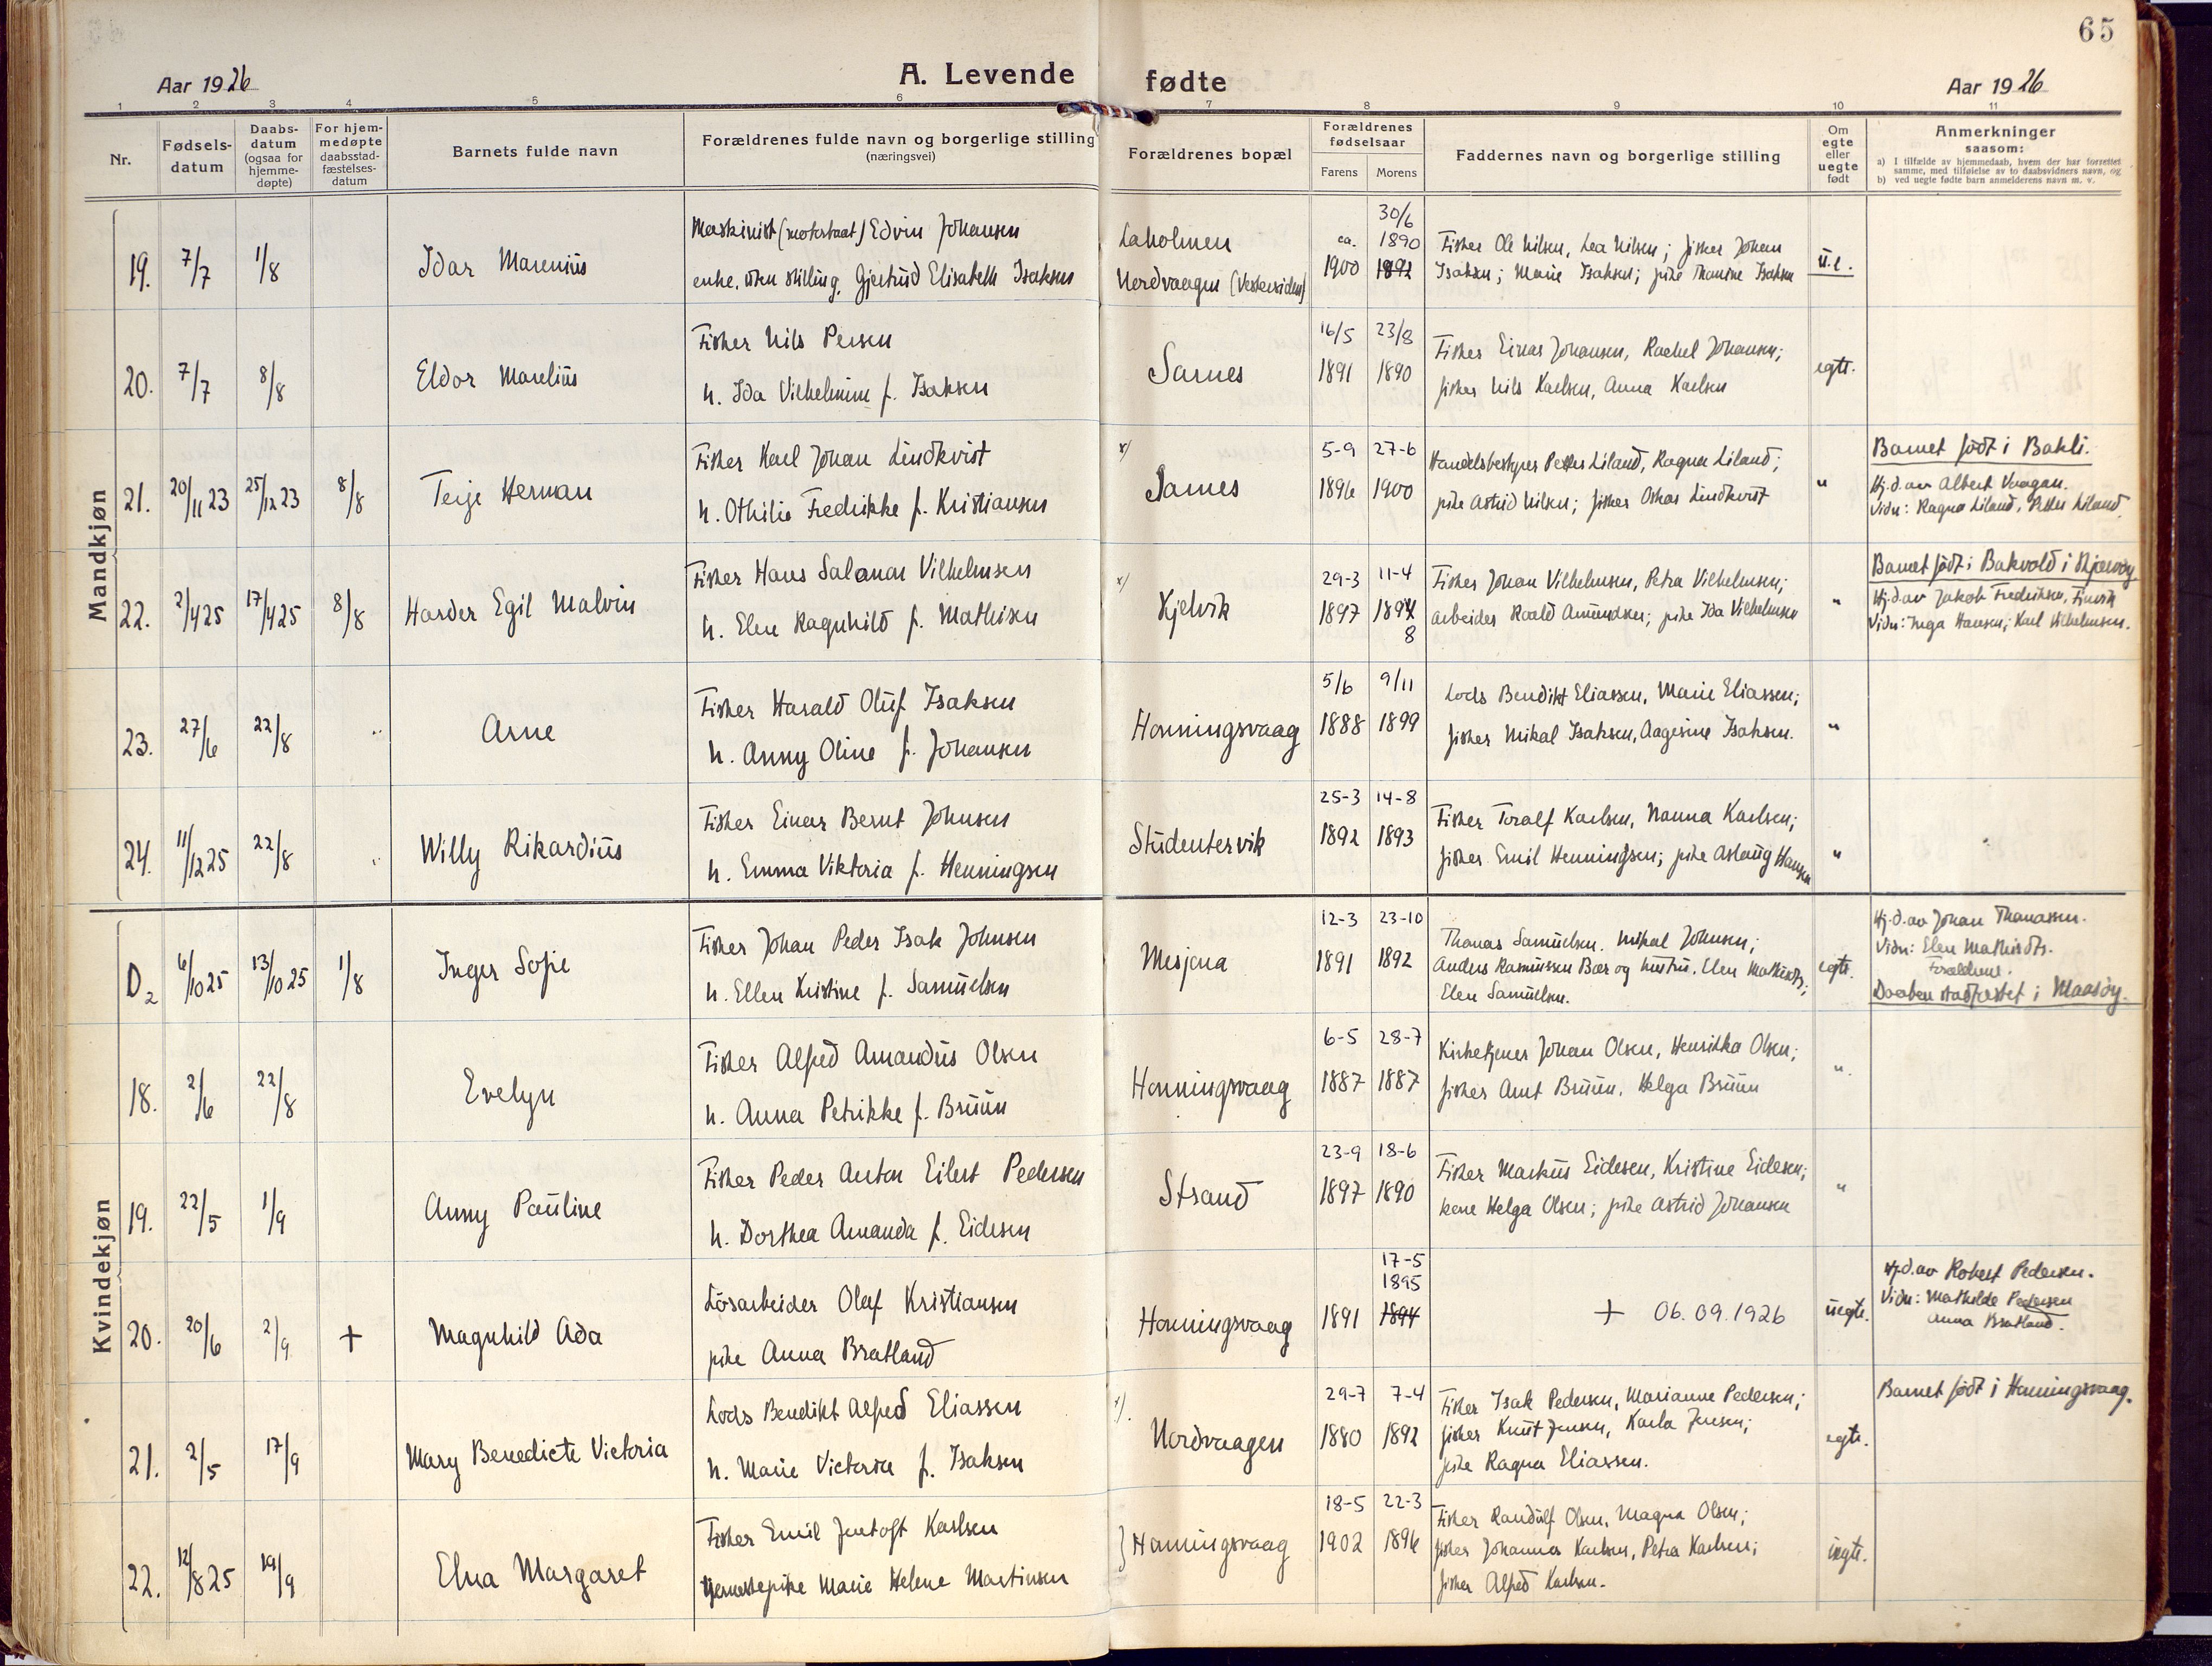 65
Aar 1926
A. Levende fødte
Aar 1926
1 2 3 4 5 6 7 8 9 10 11
Nr.
Fødsels-
datum
Daabs-
datum
(ogsaa for
hjemme-
døpte)
For hjem-
medøpte
daabsstad-
fæstelses-
datum
Barnets fulde navn
Forældrenes fulde navn og borgerlige stilling
(næringsvei)
Forældrenes bopæl
Forældrenes
fødselsaar
Farens Morens
Faddernes navn og borgerlige stilling
Om
egte
eller
uegte
født
Anmerkninger
saasom:
a) I tilfælde av hjemmedaab, hvem der har forrettet
samme, med tilføielse av to daabsvidners navn, og
b) ved uegte fødte barn anmelderens navn m. v.
Mandkjøn
19. 7/7 1/8 Idar Marenius
Maskinist (motorbaat) Edvin Johansen
enke, uten stilling, Gjertrud Elisabeth Isaksen
Laholmen
Nordvaagen (Vestersiden)
ca. 1900
30/6 1890 1892
Fisker Ole Nilsen, Lea Nilsen; fisker Johan
Isaksen; Marie Isaksen; pike Thomine Isaksen
u.e.
20. 7/7 8/8 Eldor Marelius
Fisker Nils Persen
h. Ida Vilhelmine f. Isaksen
Sarnes
16/5 1891
23/8 1890
Fisker Einar Johansen, Rachel Johansen;
fisker Nils Karlsen, Anna Karlsen
egte.
21. 20/11 23 25/12 23 8/8 Terje Herman
Fisker Karl Johan Lindkvist
h. Othilie Fredrikke f. Kristiansen
x/ Sarnes
5-9 1896
27-6 1900
Handelsbestyrer Petter Liland, Ragna Liland;
pike Astrid Nilsen; fisker Oskar Lindkvist
"
Barnet født i Bakli.
Hj.d. av Albert Vaagan.
Vidn: Ragna Liland, Petter Liland.
22. 2/4 25 17/4 25 8/8 Harder Egil Malvin
Fisker Hans Salomon Vilhelmsen
h. Elen Ragnhild f. Mathisen
x/ Kjelvik
29-3 1897
11-4 1894 8
Fisker Johan Vilhelmsen, Petra Vilhelmsen;
arbeider Roald Amundsen; pike Ida Vilhelmsen
"
Barnet født i Bakvold i Skjervøy
Hj.d. av Jakob Fredriksen,
Vidn: Inga Hansen; Karl Vilhelmsen.
23. 27/6 22/8 " Arne
Fisker Harald Oluf Isaksen
h. Anny Oline f. Johansen
Honningsvaag
5/6 1888
9/11 1899
Lods Bendikt Eliassen, Marie Eliassen;
fisker Mikal Isaksen, Aagesine Isaksen.
"
24. 11/12 25 22/8 " Willy Rikardius
Fisker Einar Bernt Johnsen
h. Emma Viktoria f. Henningsen
Studentervik
25-3 1892
14-8 1893
Fisker Toralf Karlsen, Nanna Karlsen;
fisker Emil Henningsen; pike Aslaug Hansen
"
Kvindekjøn
D2 6/10 25 13/10 25 1/8 Inger Sofie
Fisker Johan Peder Isak Johnsen
h. Ellen Kristine f. Samuelsen
Mesjona
12-3 1891
23-10 1892
Thomas Samuelsen. Mikal Johnsen;
Anders Rasmussen Bær og hustru, Elen Mathisdtr;
Elen Samuelsen.
egte.
Hj.d. av Johan Thomassen.
Vidn: Elen Mathisdtr.
Forældrene.
Daaben stadfestet i Maasøy.
18. 2/6 22/8 Evelyn
Fisker Alfred Amandus Olsen
h. Anna Petrikke f. Bruun
Honningsvaag
6-5 1887
28-7 1887
Kirketjener Johan Olsen, Henrikka Olsen;
fisker Arnt Bruun, Helga Bruun
"
19. 22/5 1/9 Anny Pauline
Fisker Peder Anton Eilert Pedersen
h. Dorthea Amanda f. Eidesen
Strand
23-9 1897
18-6 1890
Fisker Markus Eidesen, Kristine Eidesen;
kone Helga Olsen; pike Astrid Johansen
"
20. 20/6 2/9 + Magnhild Ada
Løsarbeider Olaf Kristiansen
pike Anna Bratland
Honningsvaag
1891
17-5 1895 1894
+ 06.09.1926
uegte.
Hj.d. av Robert Pedersen.
Vidn: Mathilde Pedersen
Anna Bratland.
21. 2/5 17/9 Mary Benedicte Victoria
Lods Bendikt Alfred Eliassen
h. Marie Victoria f. Isaksen
x/. Nordvaagen
29-7 1880
7-4 1892
Fisker Isak Pedersen, Marianne Pedersen;
fisker Knut Jensen, Karla Jensen;
pike Ragna Eliassen.
egte.
Barnet født i Honningsvaag.
22. 12/8 25 19/9 Elna Margaret
Fisker Emil Jentoft Karlsen
tjenestepike Marie Helene Martinsen
} Honningsvaag
18-5 1902
22-3 1896
Fisker Randulf Olsen, Magna Olsen;
fisker Johannes Karlsen, Petra Karlsen;
fisker Alfred Karlsen.
uegte.